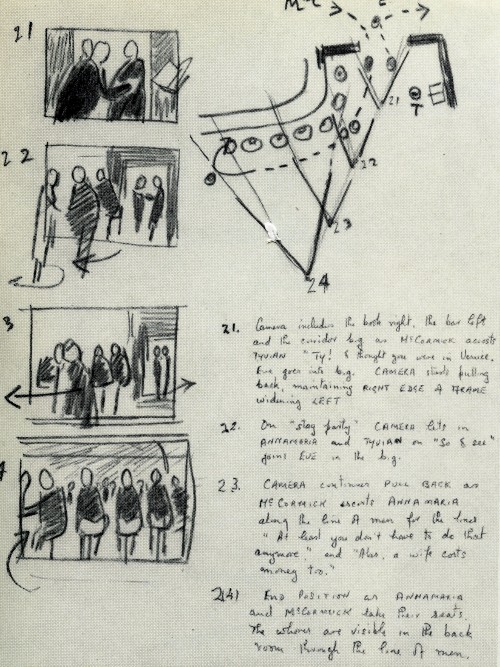 21
22
3
McC
E
21
T
22
23
24
21. Camera includes the booth right, the bar left
and the corridor b.g. as McCormick accosts
TYVIAN "Ty! I thought you were in Venice.
Eve goes into b.g. CAMERA starts pulling
back, maintaining RIGHT EDGE of FRAME
widening LEFT
22. On "stag party" CAMERA lets in
ANNAMARIA and TYVIAN on "So I see"
joins EVE in the b.g.
23. CAMERA continues PULL BACK as
McCORMICK escorts ANNAMARIA
along the line of men for the lines
"At least you don't have to do that
anymore" and "Alas, a wife costs
money too."
24. END POSITION as ANNAMARIA
and McCORMICK take their seats.
The whores are visible in the back
room through the line of men.